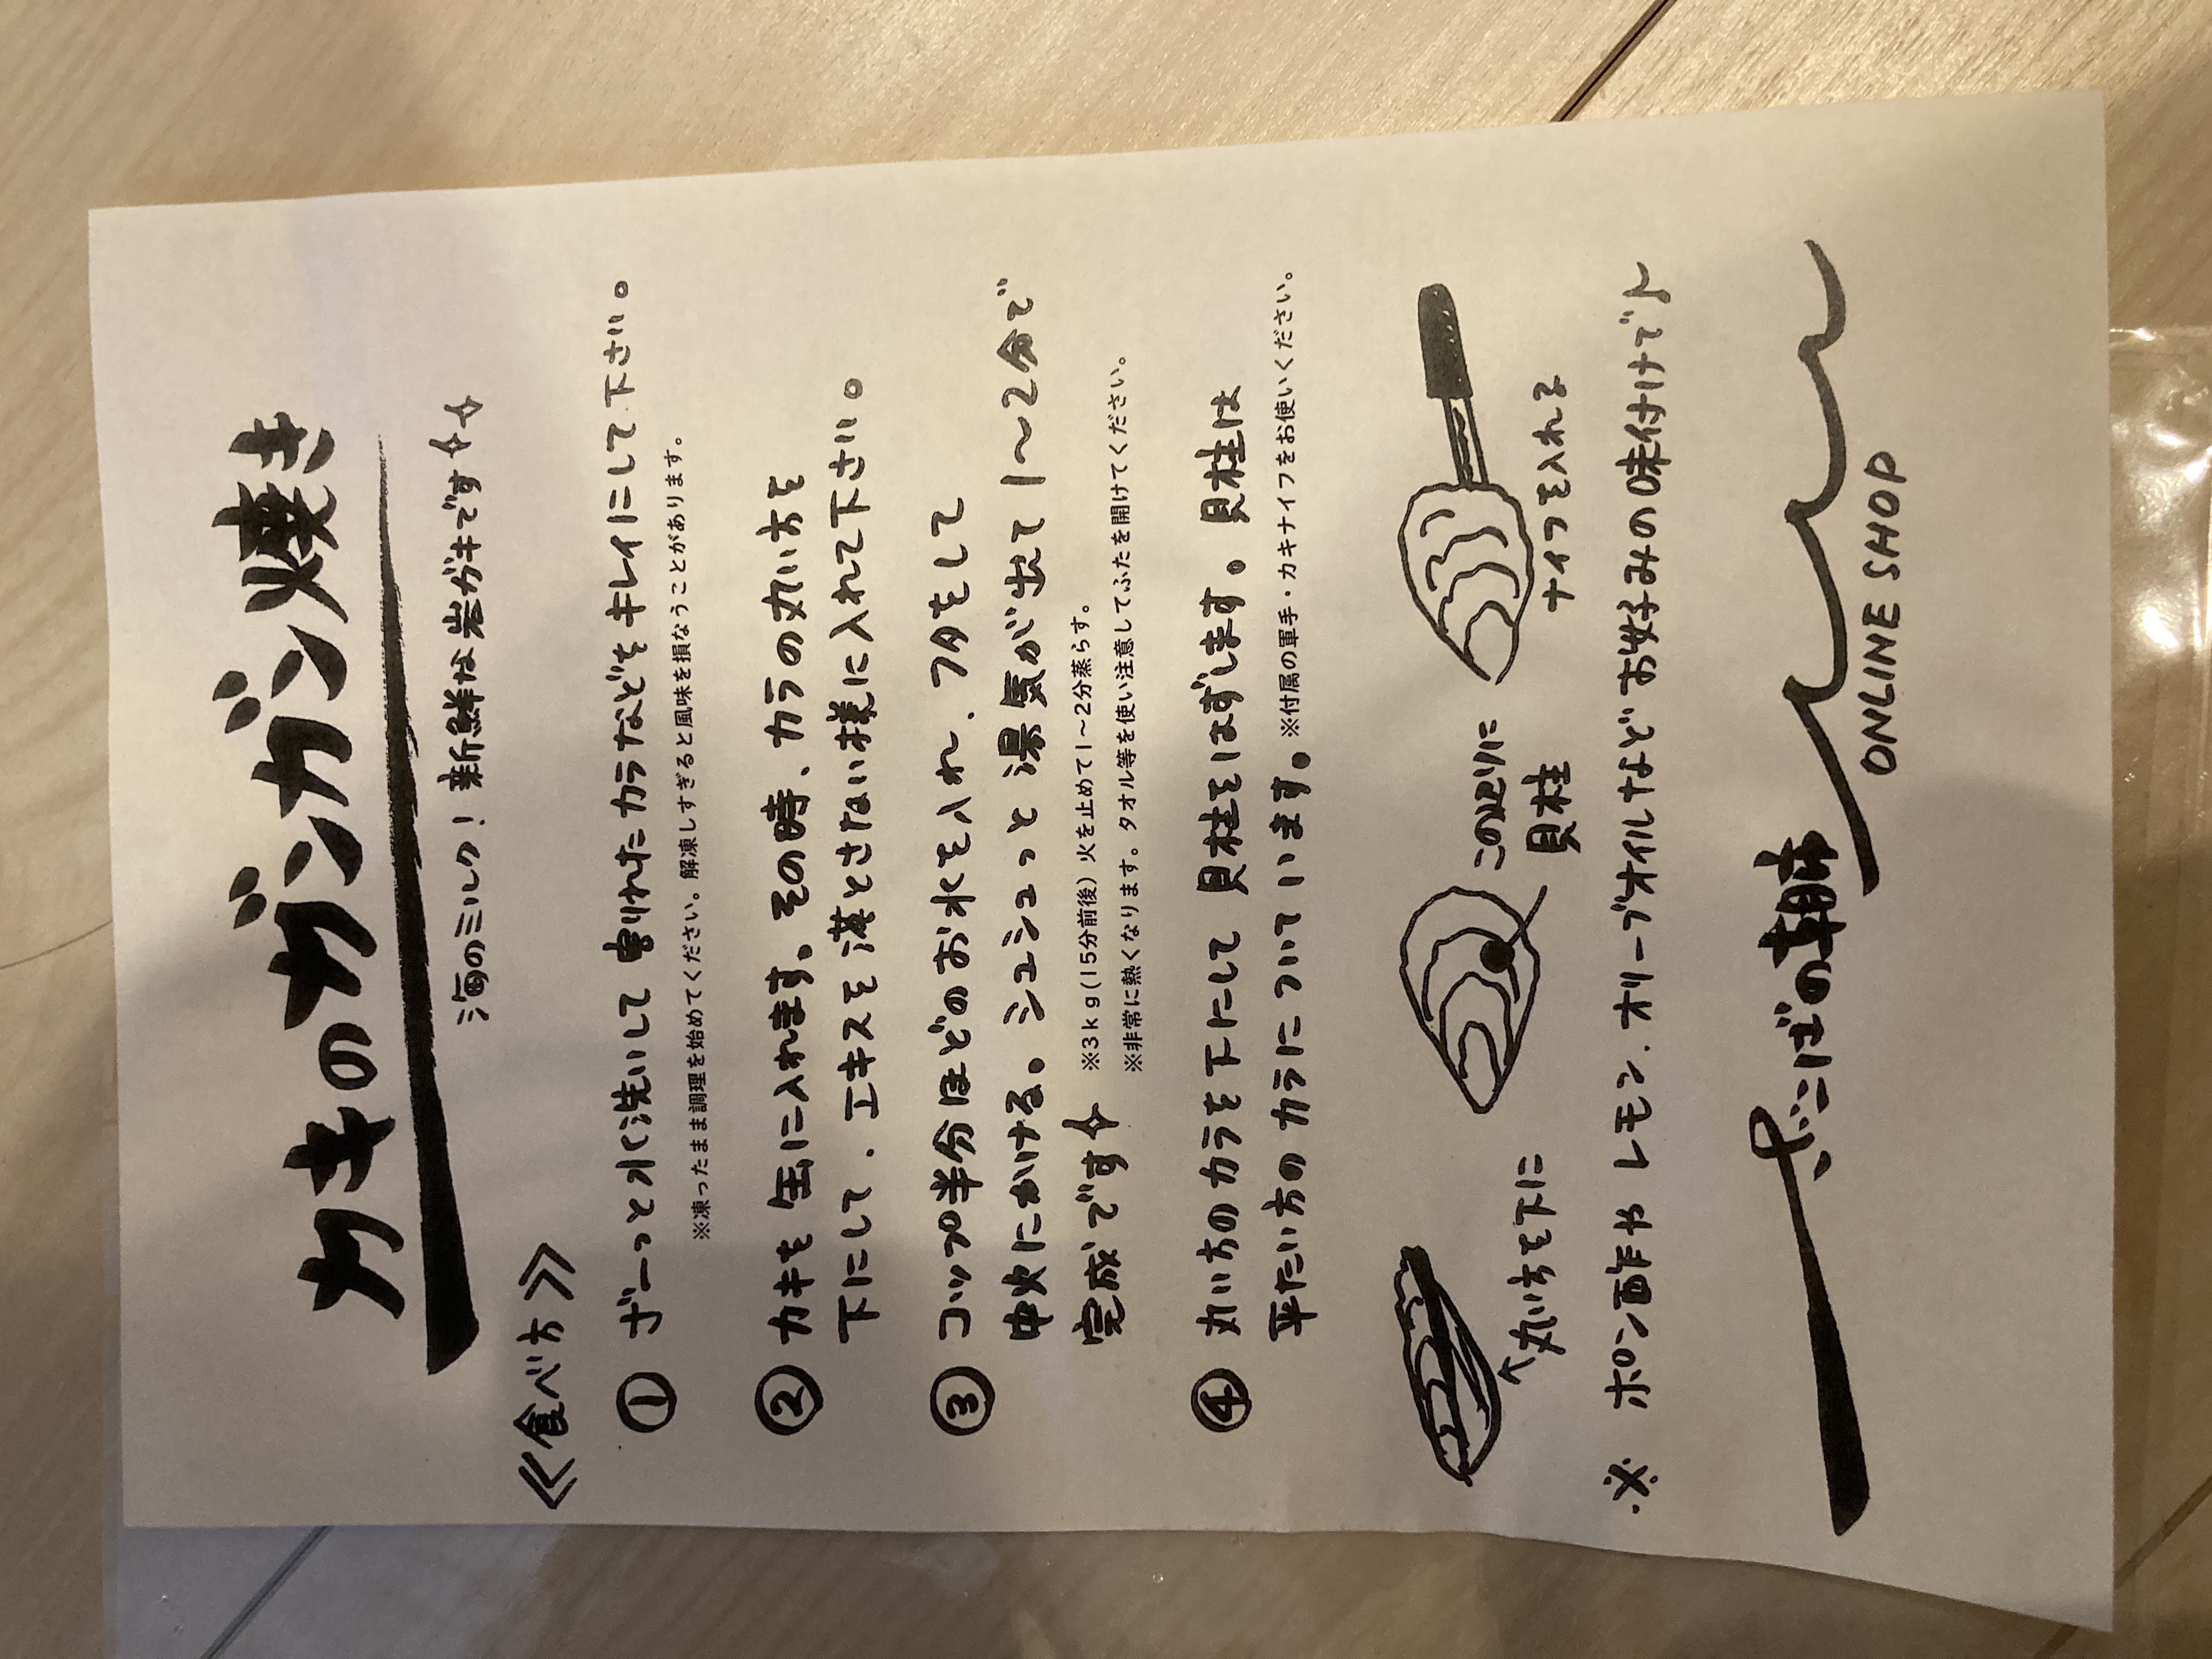 カキのガンガン焼き
海のミルク！新鮮な岩ガキです
《食べ方》
① ザーっと水洗いして割れたカラなどをキレイにして下さい。
※凍ったまま調理を始めてください。解凍しすぎると風味を損なうことがあります。
② カキを缶に入れます。その時、カラの丸い方を
下にして、エキスを落とさない様に入れて下さい。
③ コップ半分ほどのお水を入れ、フタをして
中火にかける。シュシュっと湯気が出て1〜2分で
完成です
※3kg(15分前後)火を止めて1〜2分蒸らす。
※非常に熱くなります。タオル等を使い注意してふたを開けてください。
④ 丸い方のカラを下にして貝柱をはずします。貝柱は
平たい方のカラについています。
※付属の軍手・カキナイフをお使いください。
丸い方を下に
この辺りに
貝柱
ナイフを入れる
※ ポン酢やレモン、オリーブオイルなどお好みの味付けで♪
そこばの朝市
ONLINE SHOP